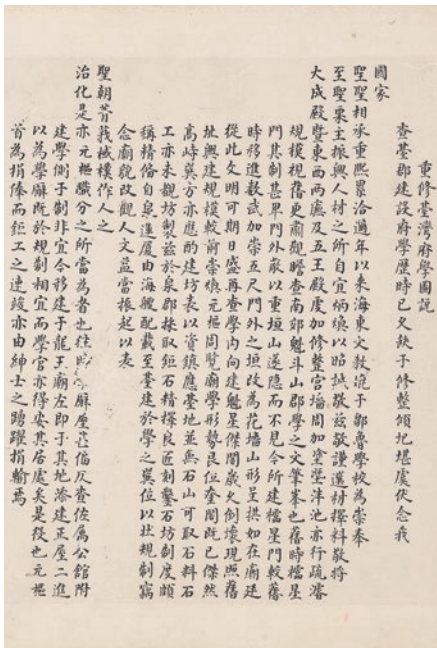 重修臺灣府學圖說
查臺郡建設府學歷時已久缺于修整傾圮堪虞伏念我
國家
聖聖相承重熙累洽邇年以來海東文教洗于鄒魯學校為崇奉
至聖栗主振興人材之所自宜炳煥以昭誠敬茲敬謹選材擇料敬將
大成殿暨東西兩廡及五王殿虔加修整宮墻周加塗塈泮池亦行疏濬
規模視舊更肅觀瞻查南郊魁斗山郡學之文筆峯也舊時櫺星
門其制甚卑門外蔽以重垣山遂隱而不見今所建櫺星門較舊
時移進數武加崇五尺門外之垣改為花墻山形呈拱如在廟廷
從此文明可期日盛再查學內向建魁星傑閣歲久倒壞現照舊
址興建規模較前崇煥元樞周覽廟學形勢艮位奎閣既已傑然
高峙巽方亦應酌建坊表以資鎮應臺地並無石山可取石料石
工亦未觀坊製茲於泉郡採取鉅石精擇良匠刻鑿石坊制度頗
稱精俻自泉運廈由海艘配載至臺建於學之巽位以壯規制竊
念廟貌改觀人文益當振起以表
聖朝菁莪棫樸作人之
治化是亦元樞職分之所當為者也徃時學廨屋臨偪仄查佐屬公館附
建學側于制非宜今移建于龍王廟左即于其地添建正屋二進
以為學廨既於規制相宜而學官亦得安其居處矣是役也元樞
首為捐俸而鉅工之速竣亦由紳士之踴躍捐輸焉